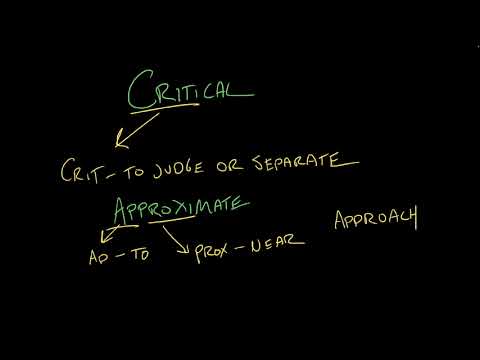 CRITICAL
CRIT - TO JUDGE OR SEPARATE
APPROXIMATE
APPROACH
AD - TO
PROX - NEAR